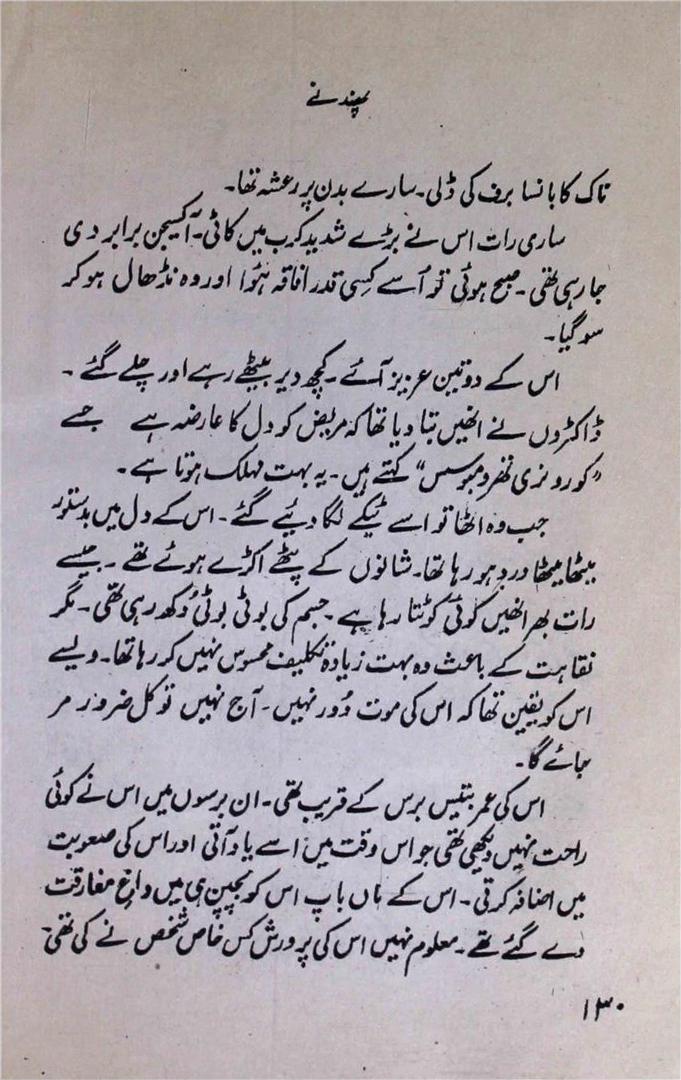 پھندنے
ناک کا بانسا برف کی ڈلی۔ سارے بدن پر رعشہ تھا۔
ساری رات اس نے بڑے شدید کرب میں کاٹی۔ آکسیجن برابر دی
جا رہی تھی۔ صبح ہوئی تو اُسے کِسی قدر افاقہ ہوُا اور وہ نڈھال ہو کر
سو گیا۔
اس کے دو تین عزیز آئے۔ کچھ دیر بیٹھے رہے اور چلے گئے۔
ڈاکٹروں نے انھیں بتا دیا تھا کہ مریض کو دل کا عارضہ ہے جسے
”کورونری تھرومبوسس“ کہتے ہیں۔ یہ بہت مہلک ہوتا ہے۔
جب وہ اٹھا تو اسے ٹیکے لگا دیئے گئے۔ اس کے دل میں بدستور
میٹھا میٹھا درد ہو رہا تھا۔ شانوں کے پٹھے اکڑے ہوئے تھے۔ جیسے
رات بھر انھیں کوئی کوٹتا رہا ہے۔ جسم کی بوٹی بوٹی دُکھ رہی تھی۔ مگر
نقاہت کے باعث وہ بہت زیادہ تکلیف محسوس نہیں کر رہا تھا۔ ویسے
اس کو یقین تھا کہ اس کی موت دُور نہیں۔ آج نہیں تو کل ضرور مر
جائے گا۔
اس کی عمر بتیس برس کے قریب تھی۔ ان برسوں میں اس نے کوئی
راحت نہیں دیکھی تھی جو اس وقت میں اسے یاد آتی اور اس کی صعوبت
میں اضافہ کرتی۔ اس کے ماں باپ اس کو بچپن ہی میں داغِ مفارقت
دے گئے تھے۔ معلوم نہیں اس کی پرورش کس خاص شخص نے کی تھی۔
۱۳۰